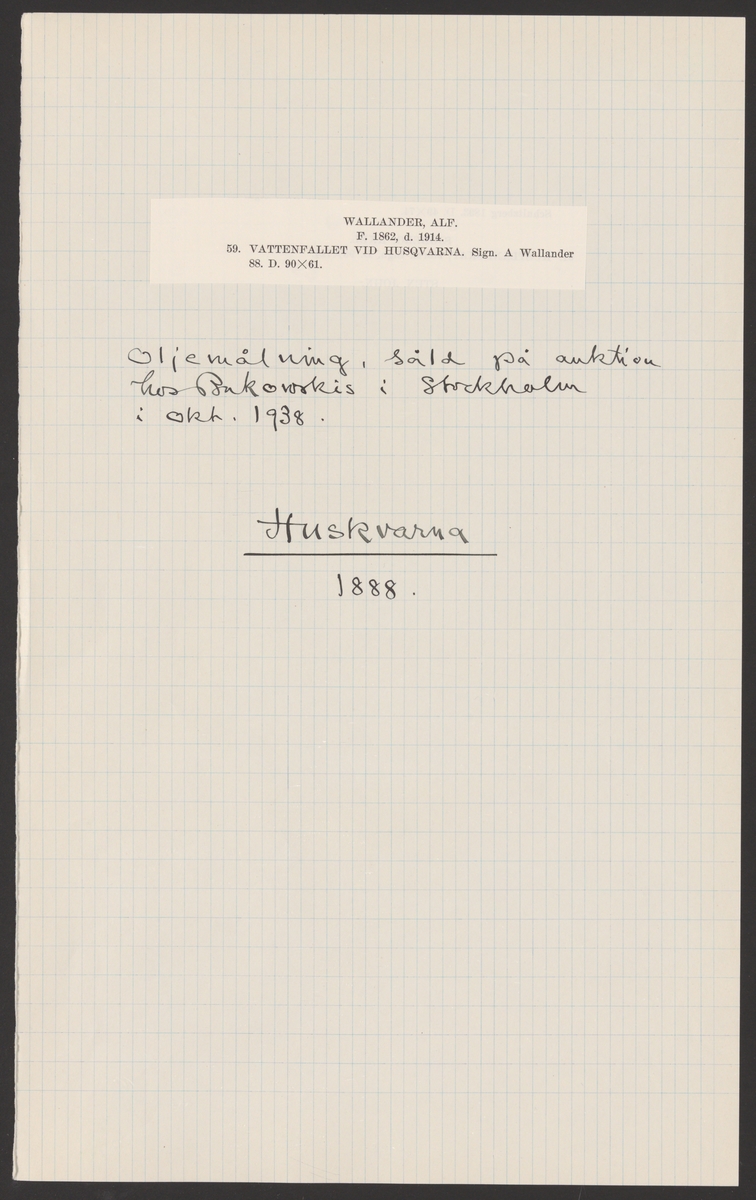 WALLANDER, ALF.
F. 1862, d. 1914.
59. VATTENFALLET VID HUSQVARNA. Sign. A Wallander
88. D. 90×61.
Oljemålning, såld på auktion
hos Bukowskis i Stockholm
i okt. 1938.
Huskvarna
1888.